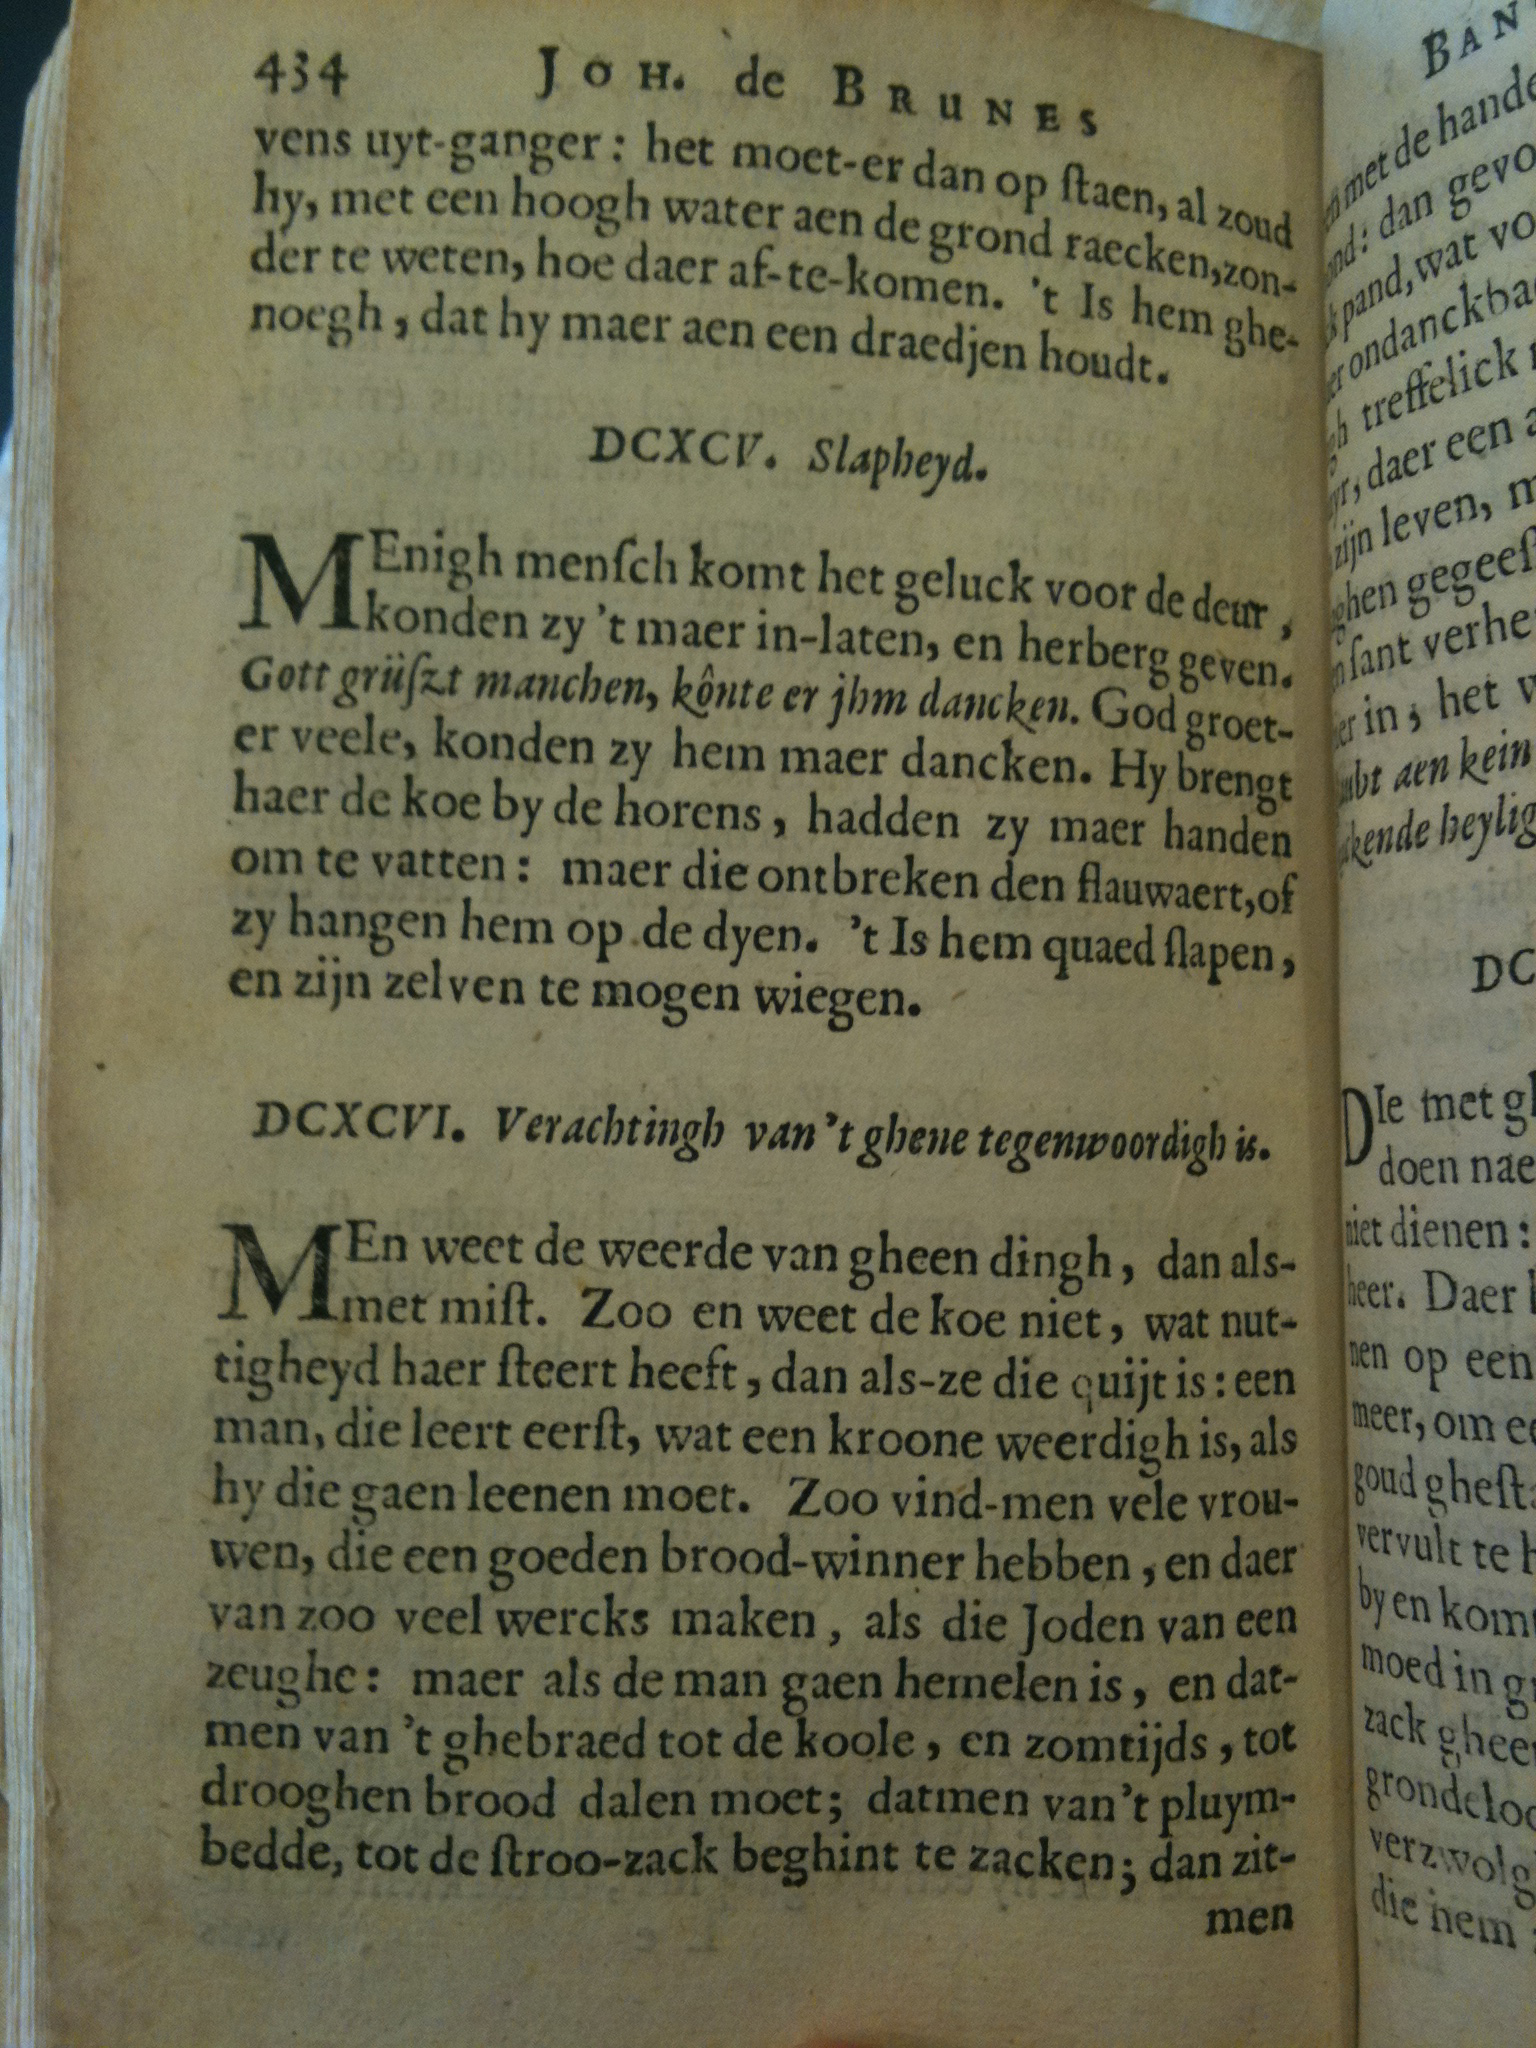 434 JOH. de BRUNES
vens uyt-ganger: het moet-er dan op ſtaen, al zoud
hy, met een hoogh water aen de grond raecken, zon-
der te weten, hoe daer af-te-komen. 't Is hem ghe-
noegh, dat hy maer aen een draedjen houdt.
DCXCV. Slapheyd.
MEnigh menſch komt het geluck voor de deur,
konden zy 't maer in-laten, en herberg geven.
Gott grüſzt manchen, kônte er jhm dancken. God groet-
er veele, konden zy hem maer dancken. Hy brengt
haer de koe by de horens, hadden zy maer handen
om te vatten: maer die ontbreken den flauwaert, of
zy hangen hem op de dyen. 't Is hem quaed ſlapen,
en zijn zelven te mogen wiegen.
DCXCVI. Verachtingh van 't ghene tegenwoordigh is.
MEn weet de weerde van gheen dingh, dan als-
met miſt. Zoo en weet de koe niet, wat nut-
tigheyd haer ſteert heeft, dan als-ze die quijt is: een
man, die leert eerſt, wat een kroone weerdigh is, als
hy die gaen leenen moet. Zoo vind-men vele vrou-
wen, die een goeden brood-winner hebben, en daer
van zoo veel wercks maken, als die Joden van een
zeughe: maer als de man gaen hemelen is, en dat-
men van 't ghebraed tot de koole, en zomtijds, tot
drooghen brood dalen moet; datmen van 't pluym-
bedde, tot de ſtroo-zack beghint te zacken; dan zit-
men
BAN
met de hande
: dan gevo
pand, wat vo
ondanckba
treffelick
, daer een
zijn leven, m
gegeeſ
ſant verhe
in, het
aen kein
heylig
DC
DIe met gh
doen nae
niet dienen:
heer. Daer
nen op een
meer, om ee
goud gheſt
vervult te
by en kom
moed in g
zack ghee
grondeloo
verzwolg
die hem